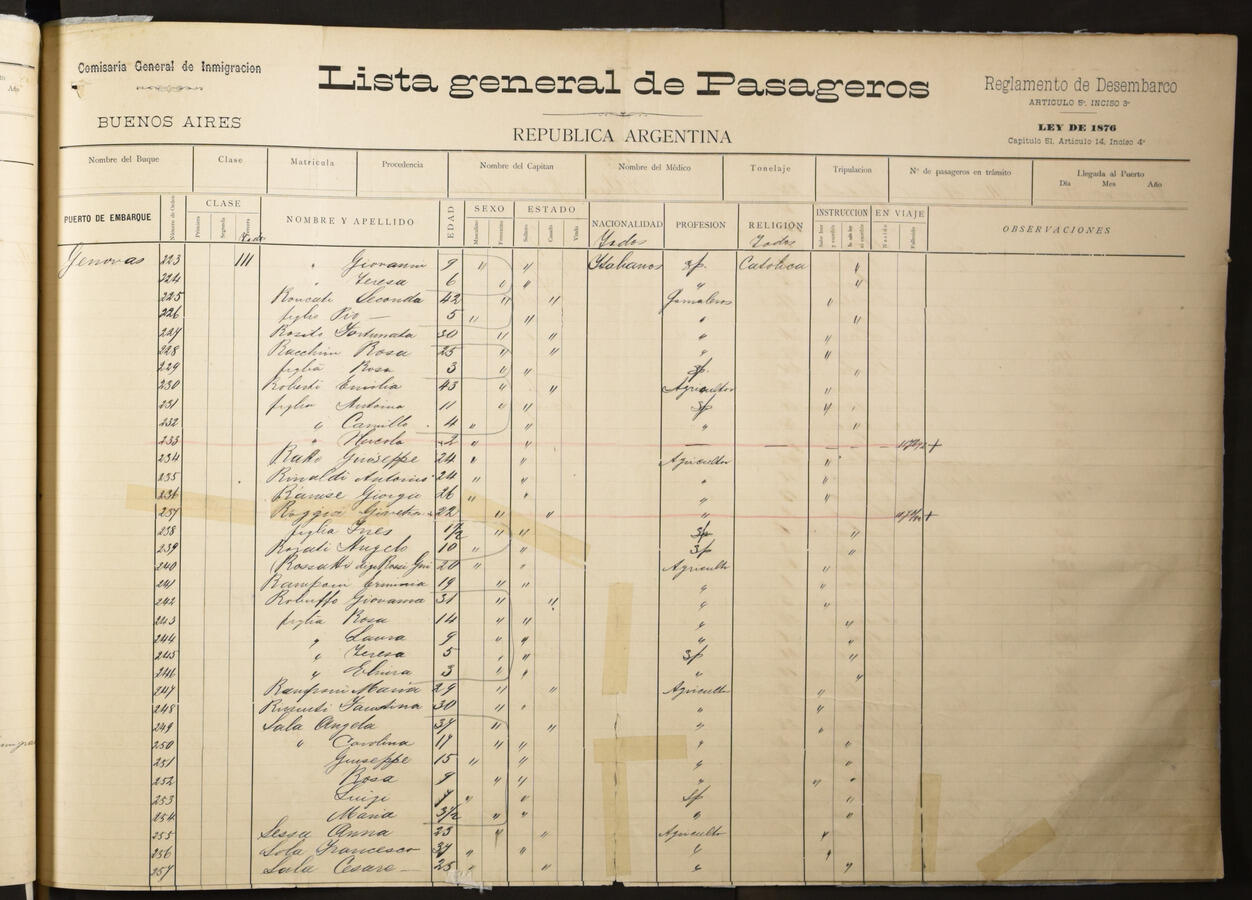 Comisaria General de Inmigracion
BUENOS AIRES
Lista general de Pasageros
REPUBLICA ARGENTINA
Reglamento de Desembarco
ARTICULO 5º. INCISO 3º
LEY DE 1876
Capitulo 51, Articulo 14, Inciso 4º
Nombre del Buque Clase Matricula Procedencia Nombre del Capitan Nombre del Médico Tonelaje Tripulacion Nº de pasageros en tránsito Llegada al Puerto
Dia Mes Año
PUERTO DE EMBARQUE Número de Orden CLASE NOMBRE Y APELLIDO EDAD SEXO ESTADO NACIONALIDAD PROFESION RELIGION INSTRUCCION EN VIAJE OBSERVACIONES
Primera Segunda Tercera Masculino Femenino Soltero Casado Viudo Nacido Fallecido
Todos Todos
Genovas 223 111 " Giovanni 9 " " Italianos Sp. Catolica "
224 " Teresa 6 " " " "
225 Roncati Seconda 42 " " Jornaleros "
226 figlio Pio — 5 " " " "
227 Fortunata 30 " " " "
228 Racchini Rosa 25 " " " "
229 figlia Rosa 3 " " Sp. "
230 Roberti Emilia 43 " " Agricultor "
231 figlia 11 " " Sp "
232 " Camillo 4 " " " "
233 " 2 " " — — — +
234 Giuseppe 24 " " Agricultor "
235 Rinaldi Antonio 24 " " " "
236 Giorgio 26 " " " "
237 22 " " " +
238 figlia Ines 1/2 " " Sp "
239 Angelo 10 " " Sp "
240 20 " " Agricult
241 Ramponi Erminia 19 " " " "
242 Robuffo Giovanna 31 " " " "
243 figlia Rosa 14 " " " "
244 " Laura 9 " " "
245 " Teresa 5 " " Sp "
246 " Elvira 3 " " " "
247 Ramponi Maria 29 " " Agricult "
248 Faustina 30 " " " "
249 Sala Angela 37 " " " "
250 " Carolina 17 " " " "
251 Giuseppe 15 " " " "
252 Rosa 9 " " " "
253 Luigi 7 " " Sp "
254 Maria 3 1/2 " " " "
255 Sessa Anna 23 " Agricult "
256 Francesco 34 " " " "
257 Sala Cesare — 25 " " " "